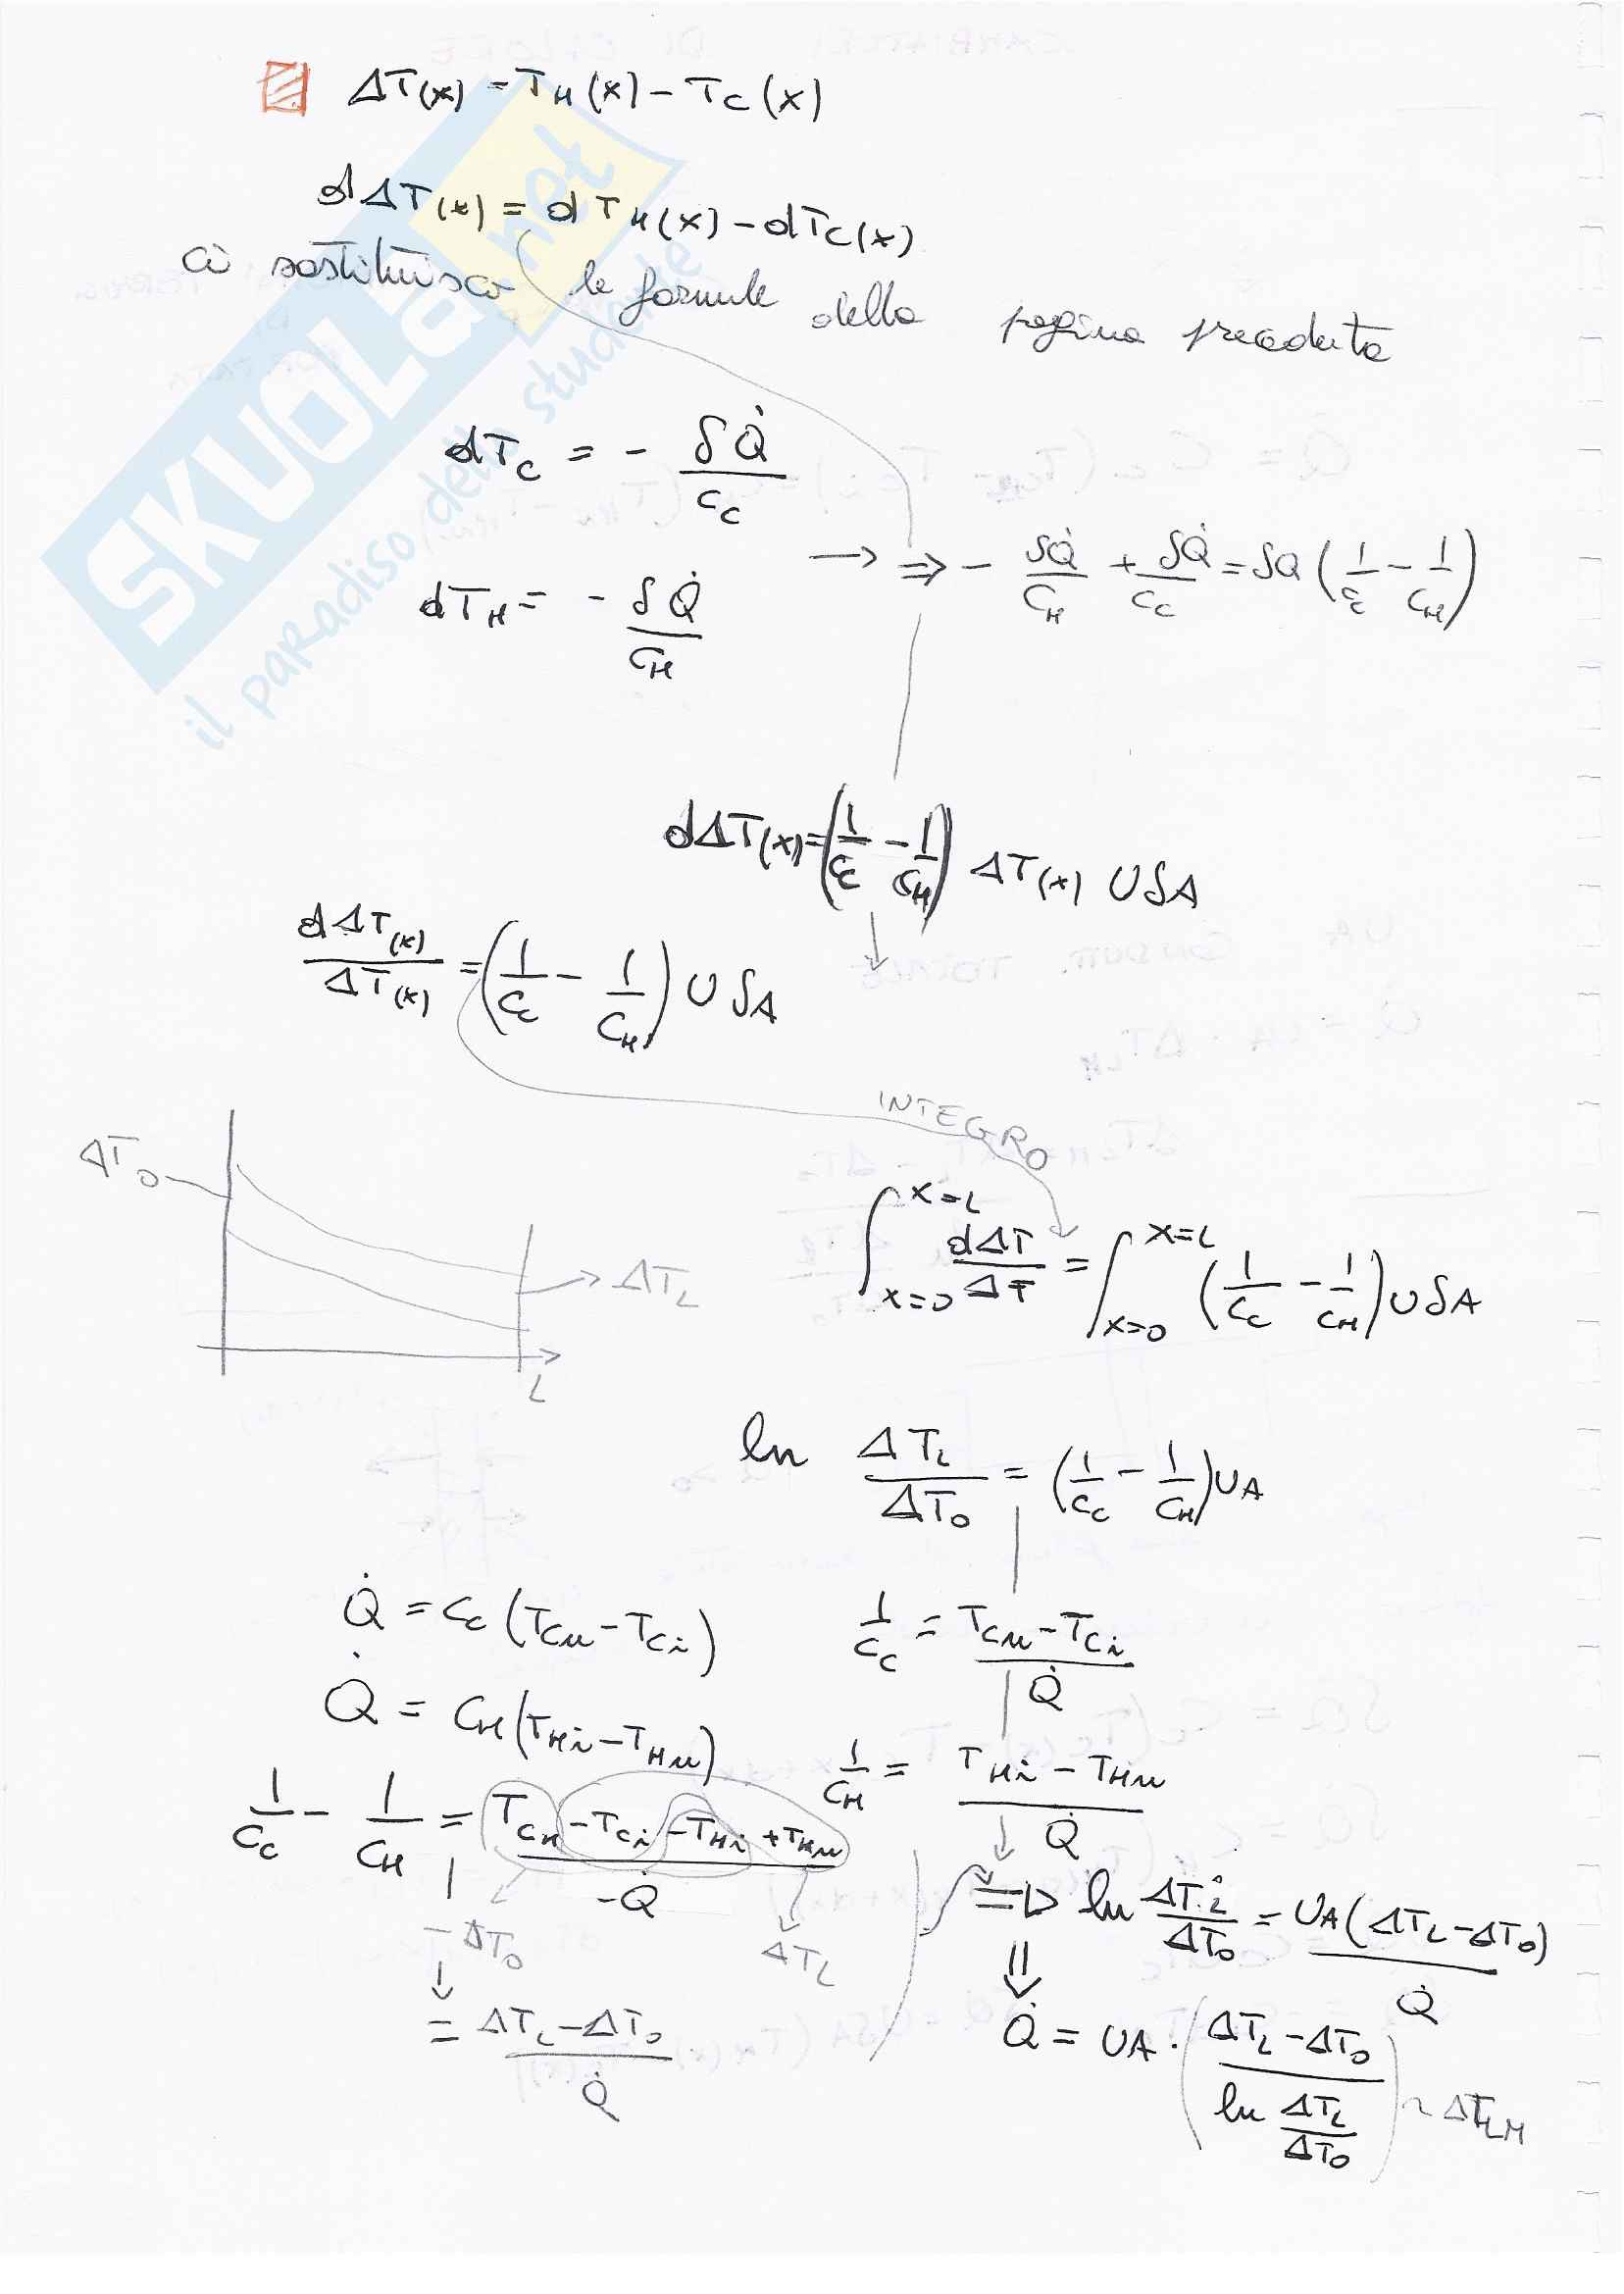 ΔT(x) = T_H(x) - T_C(x)
dΔT(x) = dT_H(x) - dT_C(x)
ci sostituisco le formule della pagina precedente
dT_C = - δQ̇ / C_C
dT_H = - δQ̇ / C_H
→ ⇒ - δQ̇/C_H + δQ̇/C_C = δQ (1/C_C - 1/C_H)
dΔT(x) = (1/C_C - 1/C_H) ΔT(x) U δA
dΔT(x)/ΔT(x) = (1/C_C - 1/C_H) U δA
INTEGRO
ΔT_0
ΔT_L
L
∫_{x=0}^{x=L} dΔT/ΔT = ∫_{x=0}^{x=L} (1/C_C - 1/C_H) U δA
ln ΔT_L/ΔT_0 = (1/C_C - 1/C_H) UA
Q̇ = C_C (T_Cu - T_Ci)
1/C_C = (T_Cu - T_Ci)/Q̇
Q̇ = C_H (T_Hi - T_Hu)
1/C_H = (T_Hi - T_Hu)/Q̇
1/C_C - 1/C_H = (T_Cu - T_Ci - T_Hi + T_Hu)/-Q̇
- ΔT_0
ΔT_L
= (ΔT_L - ΔT_0)/Q̇
⇒ ln ΔT_L/ΔT_0 = UA (ΔT_L - ΔT_0)/Q̇
⇓
Q̇ = UA · ((ΔT_L - ΔT_0)/(ln ΔT_L/ΔT_0)) ~ ΔT_LM
SKUOLa.net
il paradiso dello studente